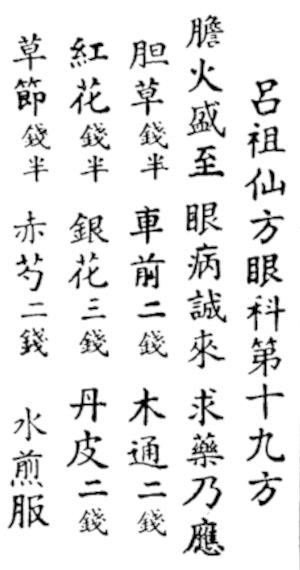 呂祖仙方眼科第十九方
膽火盛至 眼病誠來 求藥乃應
胆草錢半 車前二錢 木通二錢
紅花錢半 銀花三錢 丹皮二錢
草節錢半 赤芍二錢 水煎服